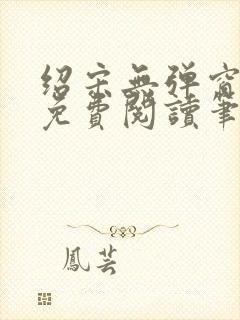 绍宋無弹窗
免費閱讀筆
鳳芸